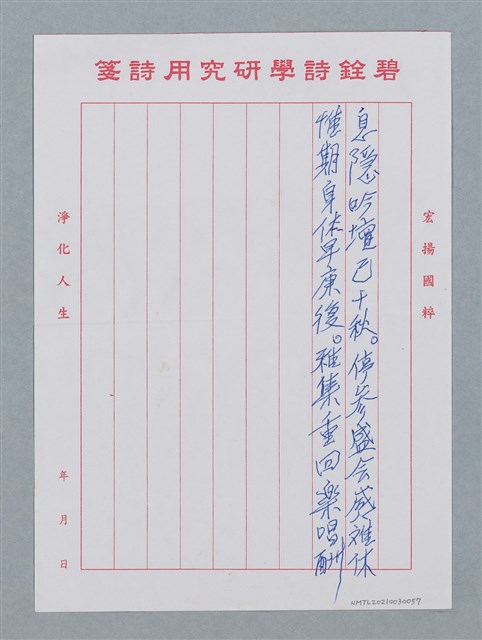 碧銓詩學研究用詩箋
宏揚國粹
息隱吟壇已十秋。停参盛会感难休
惟期身体早康復。雅集重回楽唱酬
淨化人生
年月日
NMTL20210030057